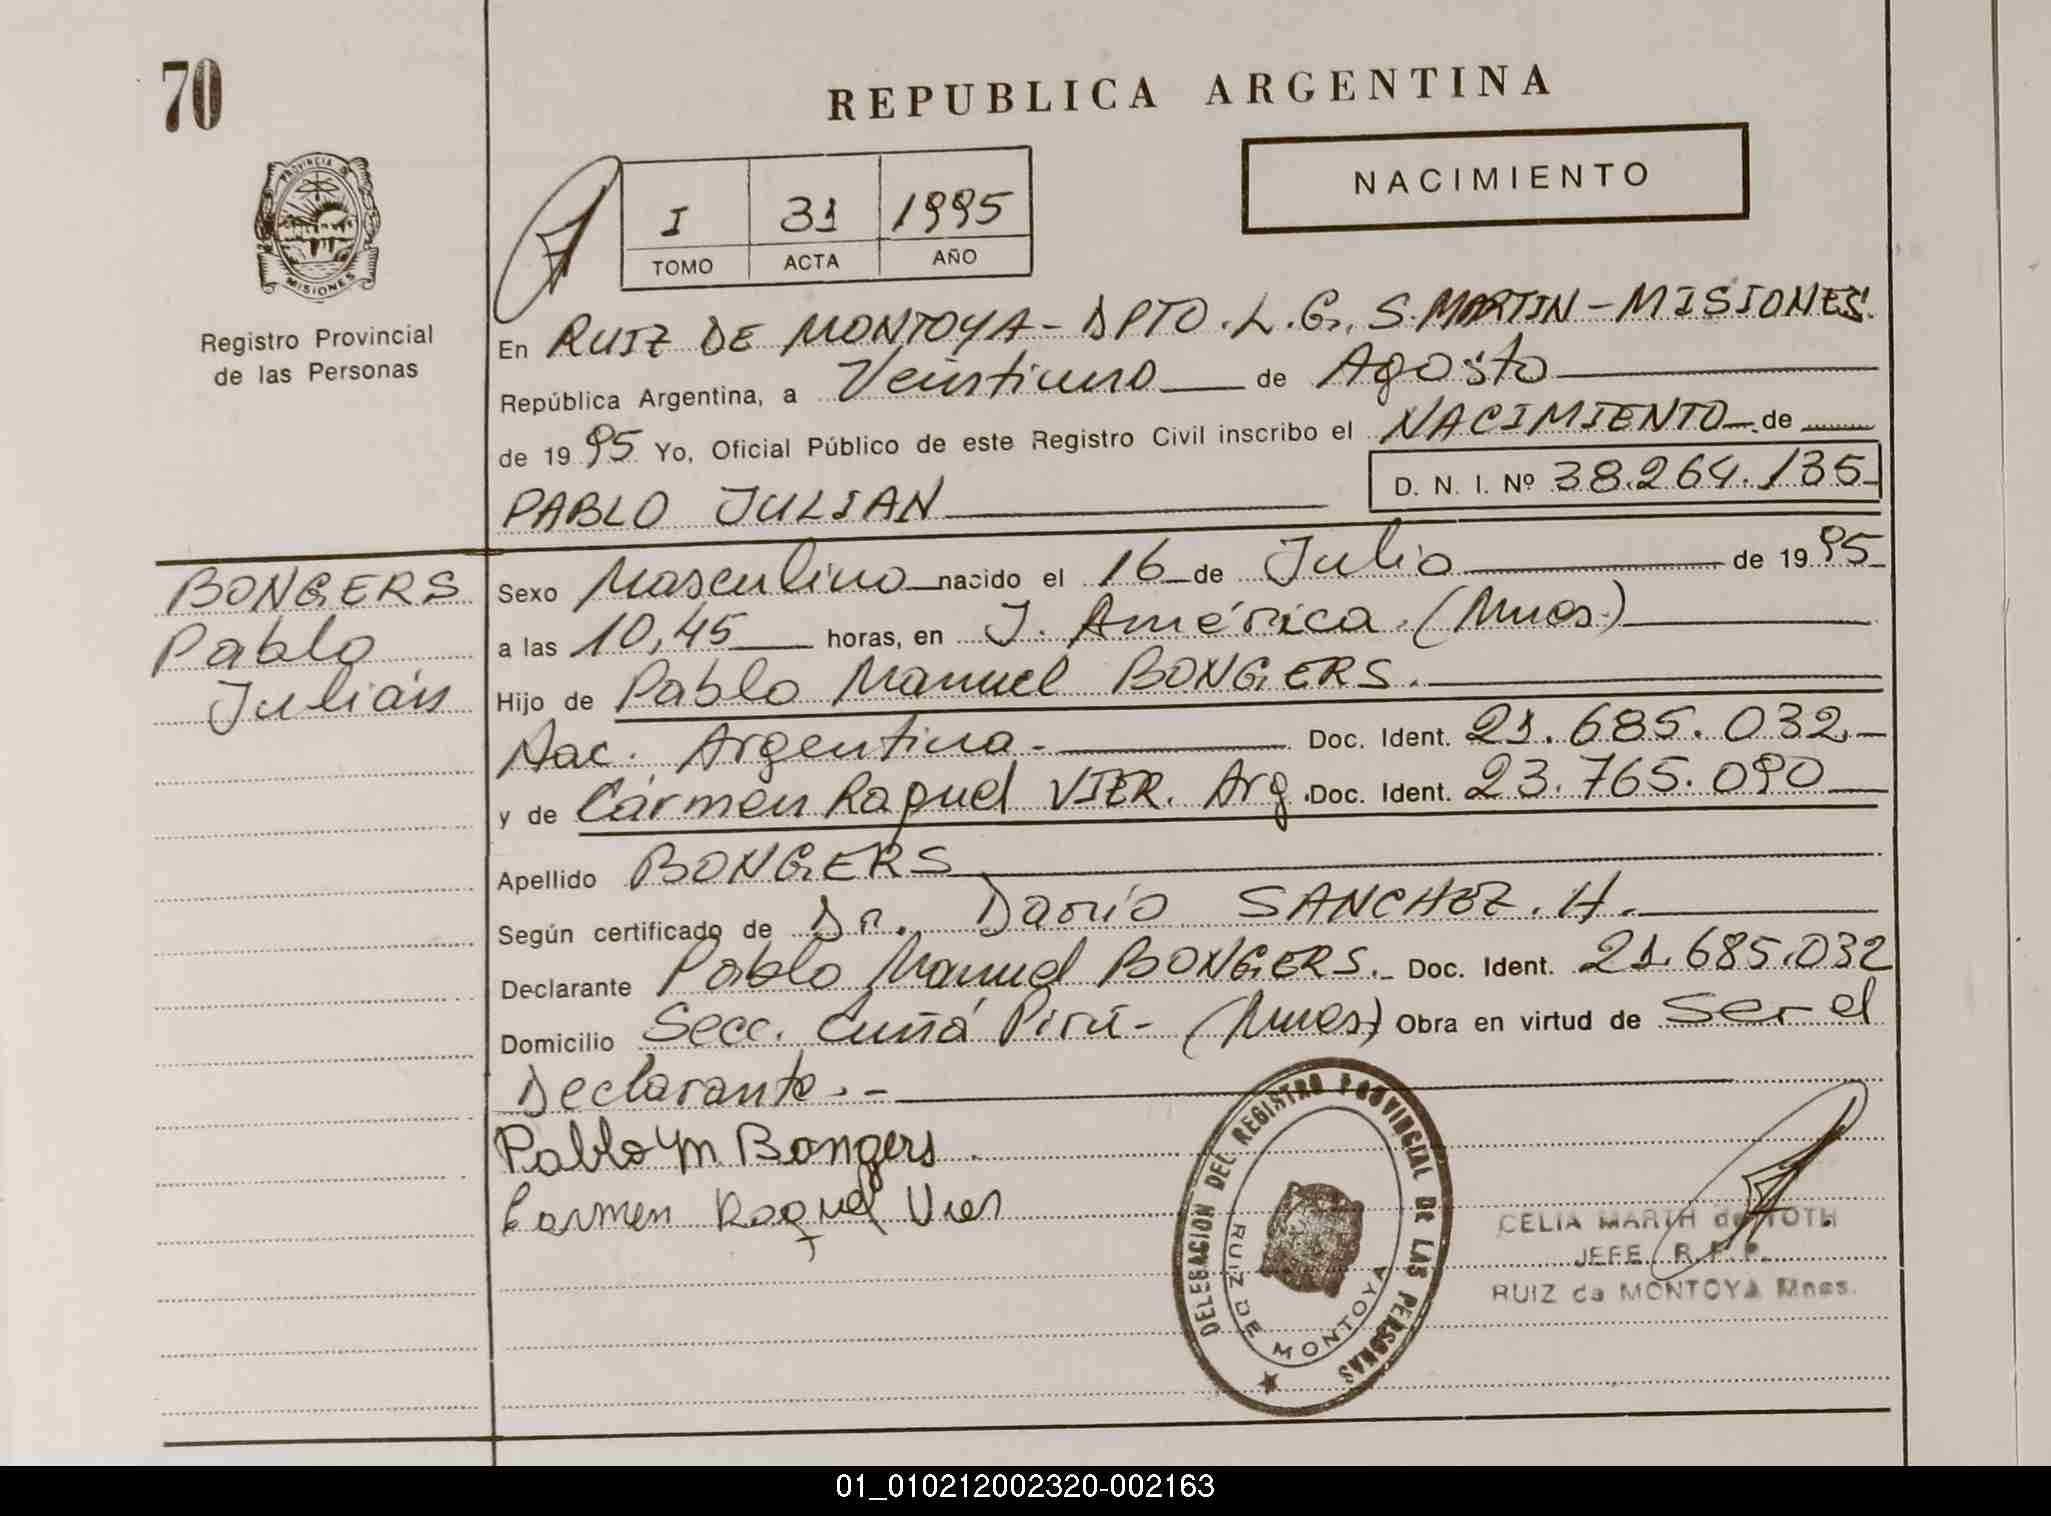 70
REPUBLICA ARGENTINA
NACIMIENTO
PROVINCIA D
MISIONES
Registro Provincial
de las Personas
I 31 1995
TOMO ACTA AÑO
En RUIZ DE MONTOYA - DPTO. L. G. S. MARTIN - MISIONES.
República Argentina, a Veintiuno de Agosto
de 1995 Yo, Oficial Público de este Registro Civil inscribo el NACIMIENTO de
PABLO JULIAN D. N. I. Nº 38.264.135
BONGERS
Pablo
Julián
Sexo Masculino nacido el 16 de Julio de 1995
a las 10,45 horas, en J. América. (Mnes.)
Hijo de Pablo Manuel BONGERS.
Nac. Argentina.- Doc. Ident. 21.685.032
y de Cármen Raquel VIER. Arg. Doc. Ident. 23.765.090
Apellido BONGERS
Según certificado de Dr. Darío SANCHEZ. H.
Declarante Pablo Manuel BONGERS.- Doc. Ident. 21.685.032
Domicilio Secc. Cuñá Pirú - (Mnes) Obra en virtud de ser el
Declarante.-
Pablo M. Bongers
Carmen Raquel Vier
DELEGACION DEL REGISTRO PROVINCIAL DE LAS PERSONAS
RUIZ DE MONTOYA
CELIA MARTH de TOTH
JEFE R. P. P.
RUIZ de MONTOYA Mnes.
01_010212002320-002163